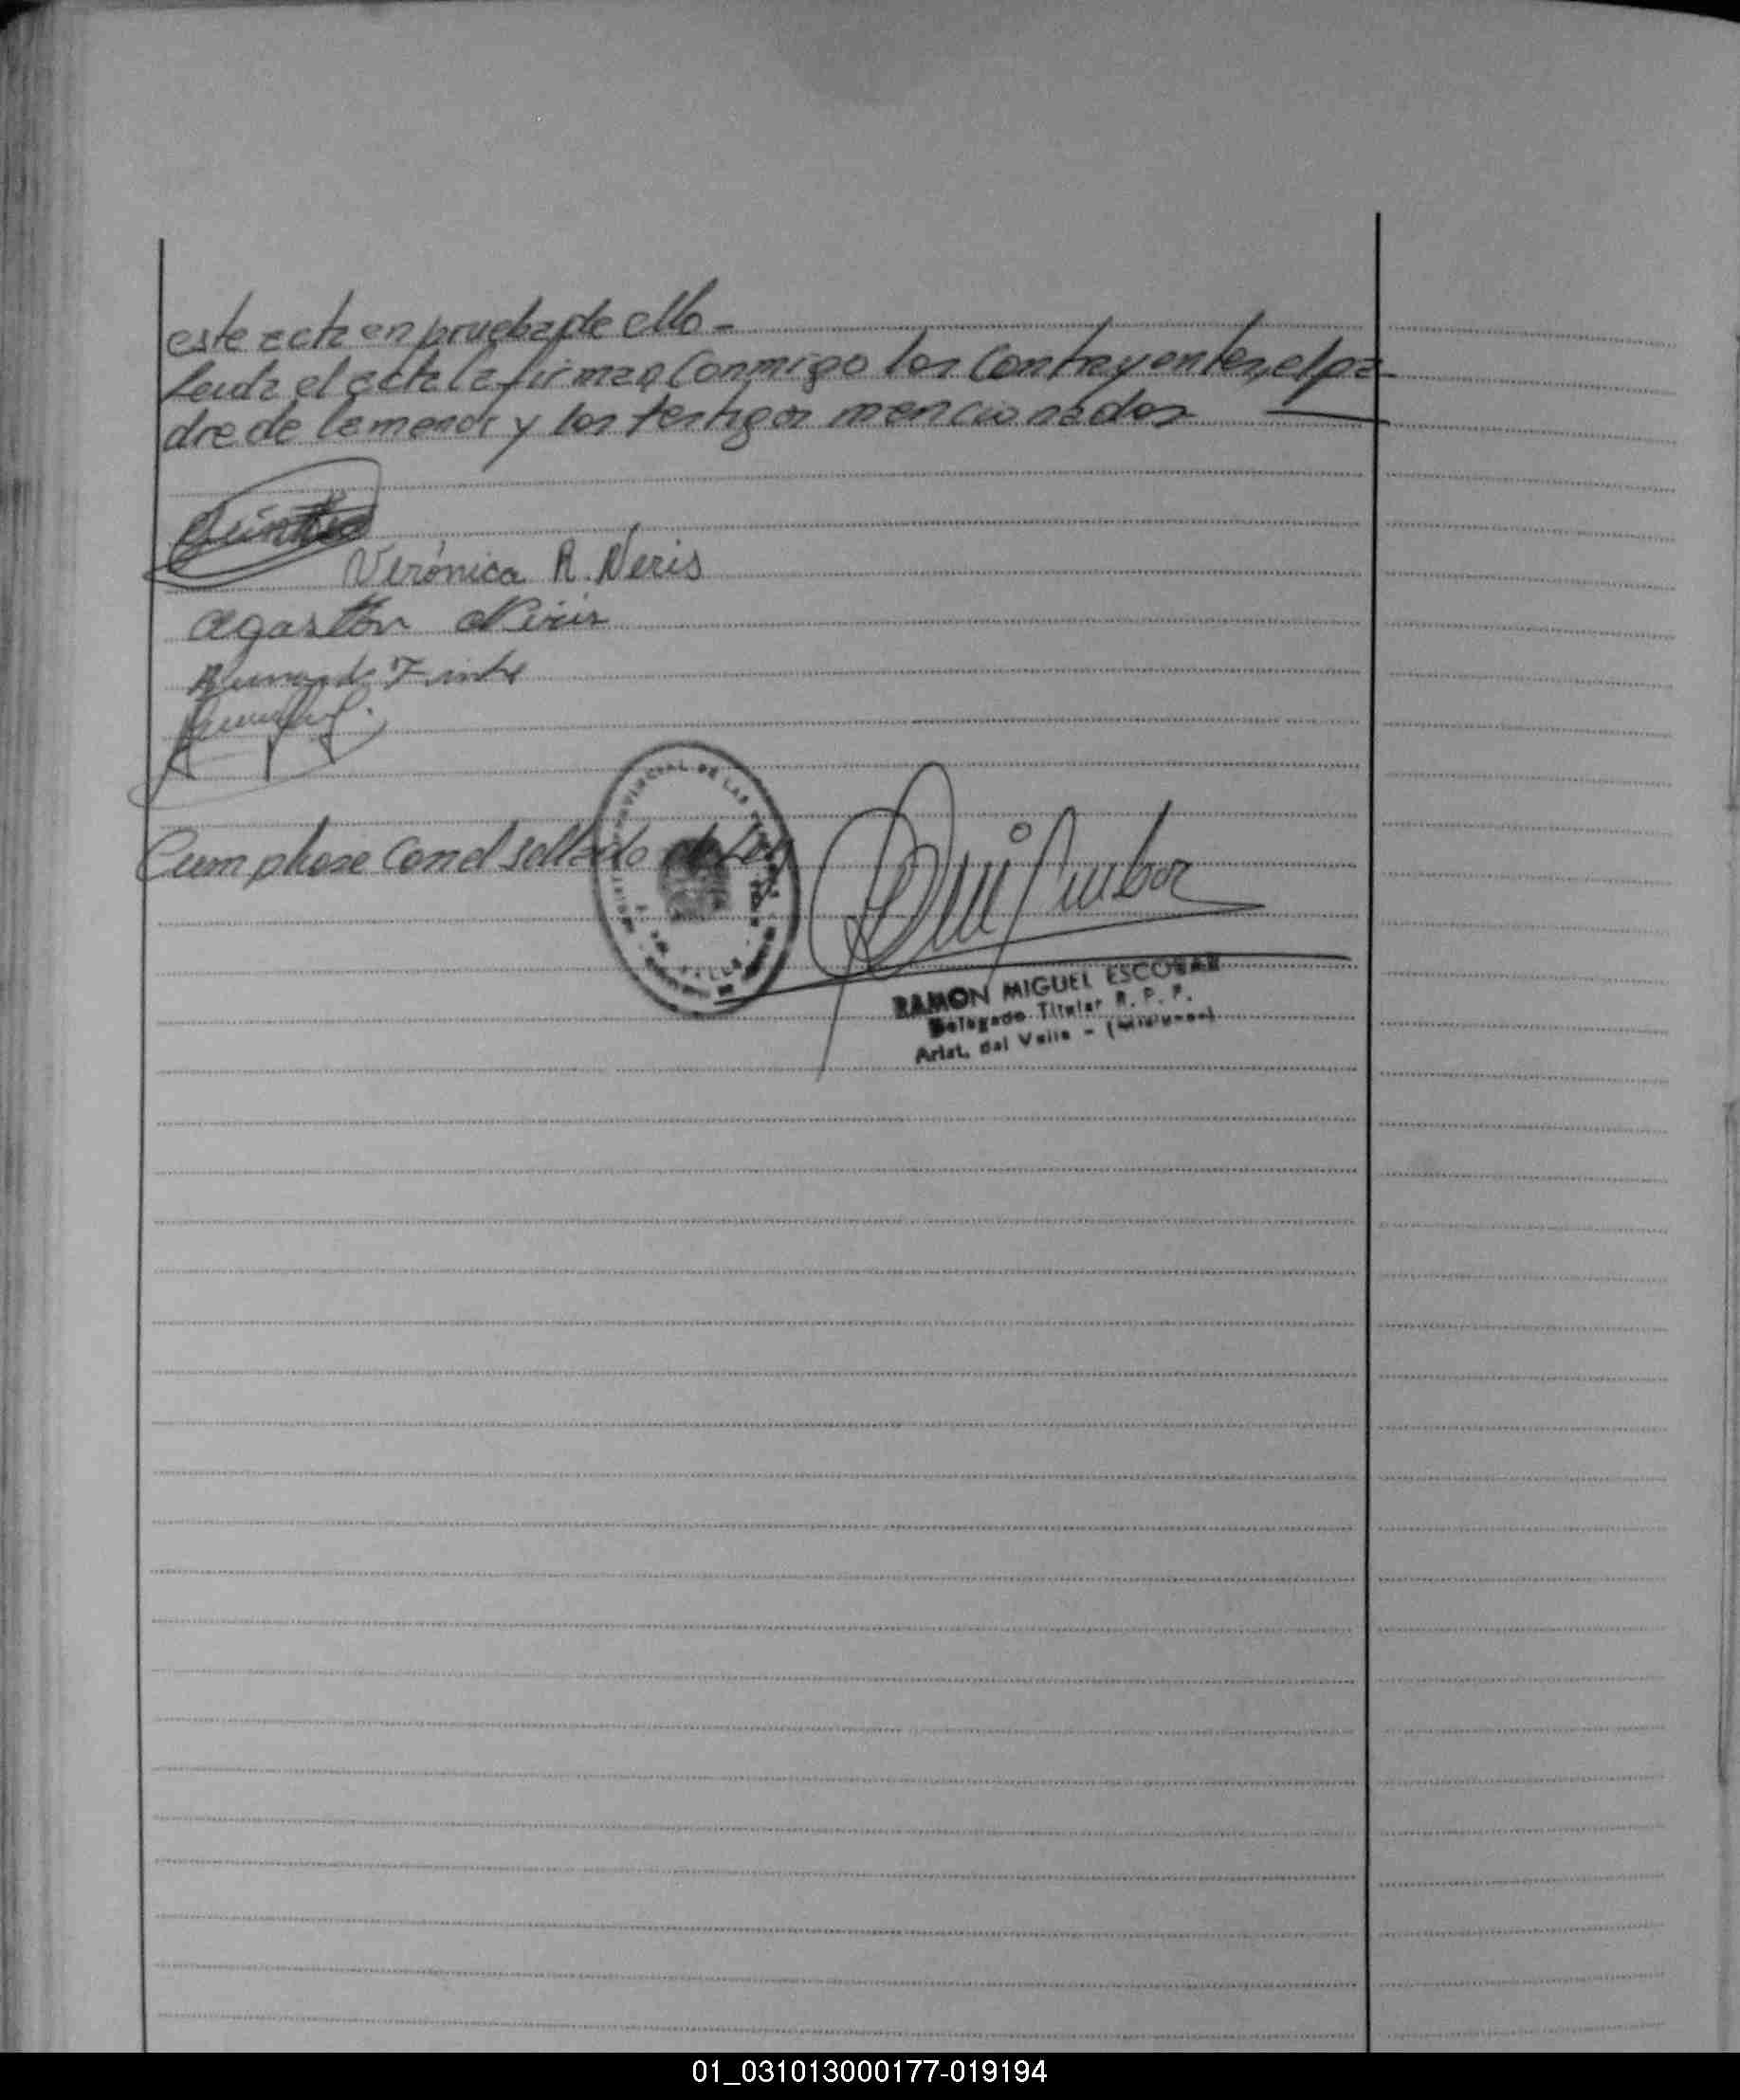 este acta en prueba de ello -
Leida el acta la firman conmigo los contrayentes, el pa-
dre de la menor y los testigos mencionados
Verónica R. Neris
Agastón Neris
Cumplase con el sellado de Ley
RAMON MIGUEL ESCOBAR
Delegado Titular R. P. P.
Arist. del Valle - (Misiones)
01_031013000177-019194